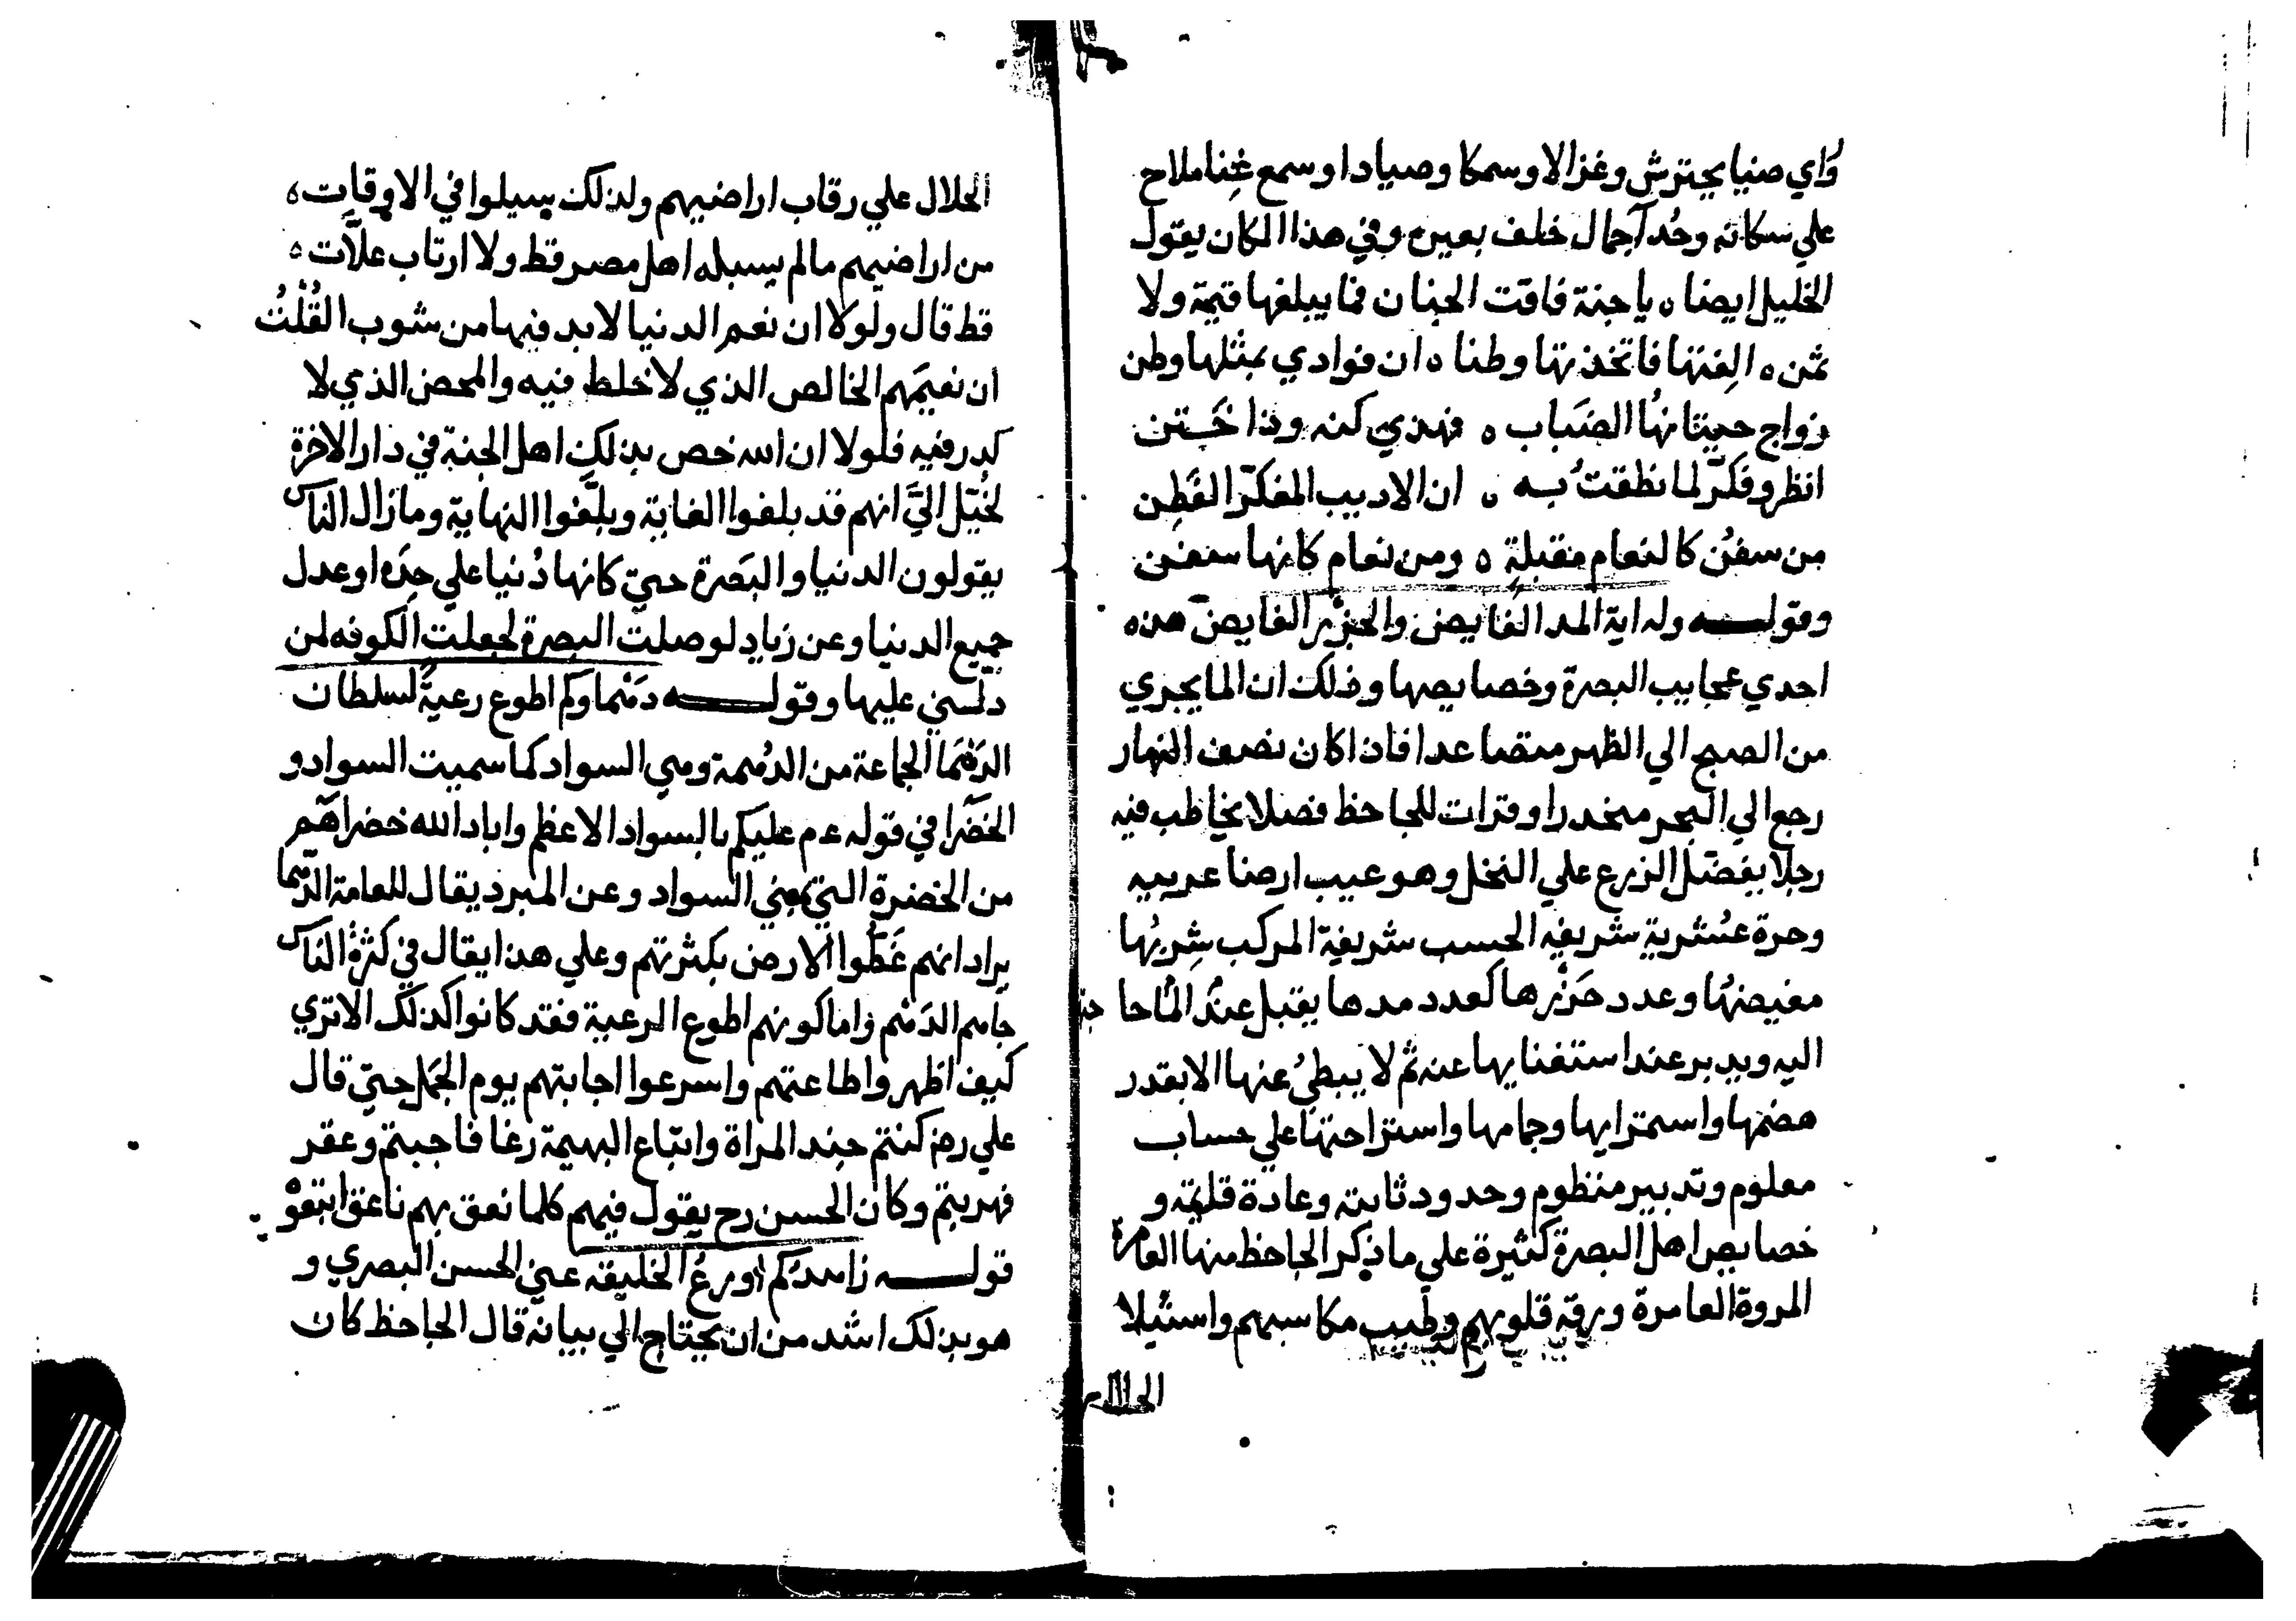 وراي صنبا يحترش وغزالا وسمكا وصيادا وسمع غنا ملاح
علي سكانه وحدا جمال خلف بعيره وفي هذا المكان يقول
الخليل ايضا ٥ يا جنة فاقت الجنان فما يبلغها قيمة ولا
ثمن ٥ الفتها فاتخذتها وطنا ٥ ان فوادي بمثلها وطن
زواج حيتانها الضباب ٥ فهذي كنه وذا ختن
انظر وفكر لما نطقت به ٥ ان الاديب المفكر الفطن
من سفن كالنعام مقبلة ٥ ومن نعام كانها سفن
وقوله وله اية المد الفايض والجزر الغايض هذه
احدي عجايب البصرة وخصايصها وذلك ان الما يجري
من الصبح الي الظهر متصاعدا فاذا كان نصف النهار
رجع الي البحر منحدرا وقرات للجاحظ فصلا يخاطب فيه
رجلا بفضل الزرع علي النخل وهو عيب ارضا عربيه
وحرة عشرية شريفه الحسب شريفة المركب شربها
مغيضها وعدد جزرها كعدد مدها يقبل عند الما حا جتها
اليه ويدبر عند استغنايها عنه ثم لا يبطئ عنها الا بقدر
هضمها واستمرايها وجمامها واستراحتها علي حساب
معلوم وتدبير منظوم وحدود ثابته وعادة قايمة و
خصايص اهل البصرة كثيرة علي ما ذكر الجاحظ منها العامرة
المروة العامرة ورقة قلوبهم وطيب مكاسبهم واستيلا
الحلال
الحلال علي رقاب اراضيهم ولذلك يسيلوا في الاوقات ٥
من اراضيهم ما لم يسبله اهل مصر قط ولا ارتاب علات ٥
قط قال ولولا ان نعم الدنيا لا بد فيها من شوب القلت
ان نعيمهم الخالص الذي لا خلط فيه والمحض الذي لا
كدر فيه فلولا ان الله خص بذلك اهل الجنة في دار الاخرة
لخيل الي انهم قد بلغوا الغاية وبلغوا النهاية وما زال الناس
يقولون الدنيا والبصرة حتي كانها دنيا علي حده او عدل
جميع الدنيا وعن زياد لو صلت البصرة لجعلت الكوفه لمن
دلسني عليها وقوله دهماوكم اطوع رعية لسلطان
الدهما الجماعة من الدهمة وهي السواد كما سميت السواد و
الخضرا في قوله عم عليكم بالسواد الاعظم واباد الله خضراهم
من الخضرة التي بمعني السواد وعن المبرد يقال للعامة الدهما
يراد انهم غطوا الارض بكثرتهم وعلي هذا يقال في كثرة الناس
جاهم الدهم واما كونهم اطوع الرعية فقد كانوا كذلك الا تري
كيف اظهروا طاعتهم واسرعوا اجابتهم يوم الجمل حتي قال
علي رض كنتم جند المراة واتباع البهيمة رغا فاجبتم وعقر
فهربتم وكان الحسن رح يقول فيهم كلما نعق بهم ناعق اتبعوه
قوله زاهدكم اورع الخليقه عني الحسن البصري و
هو بذلك اشد من ان يحتاج الي بيانه قال الجاحظ كان